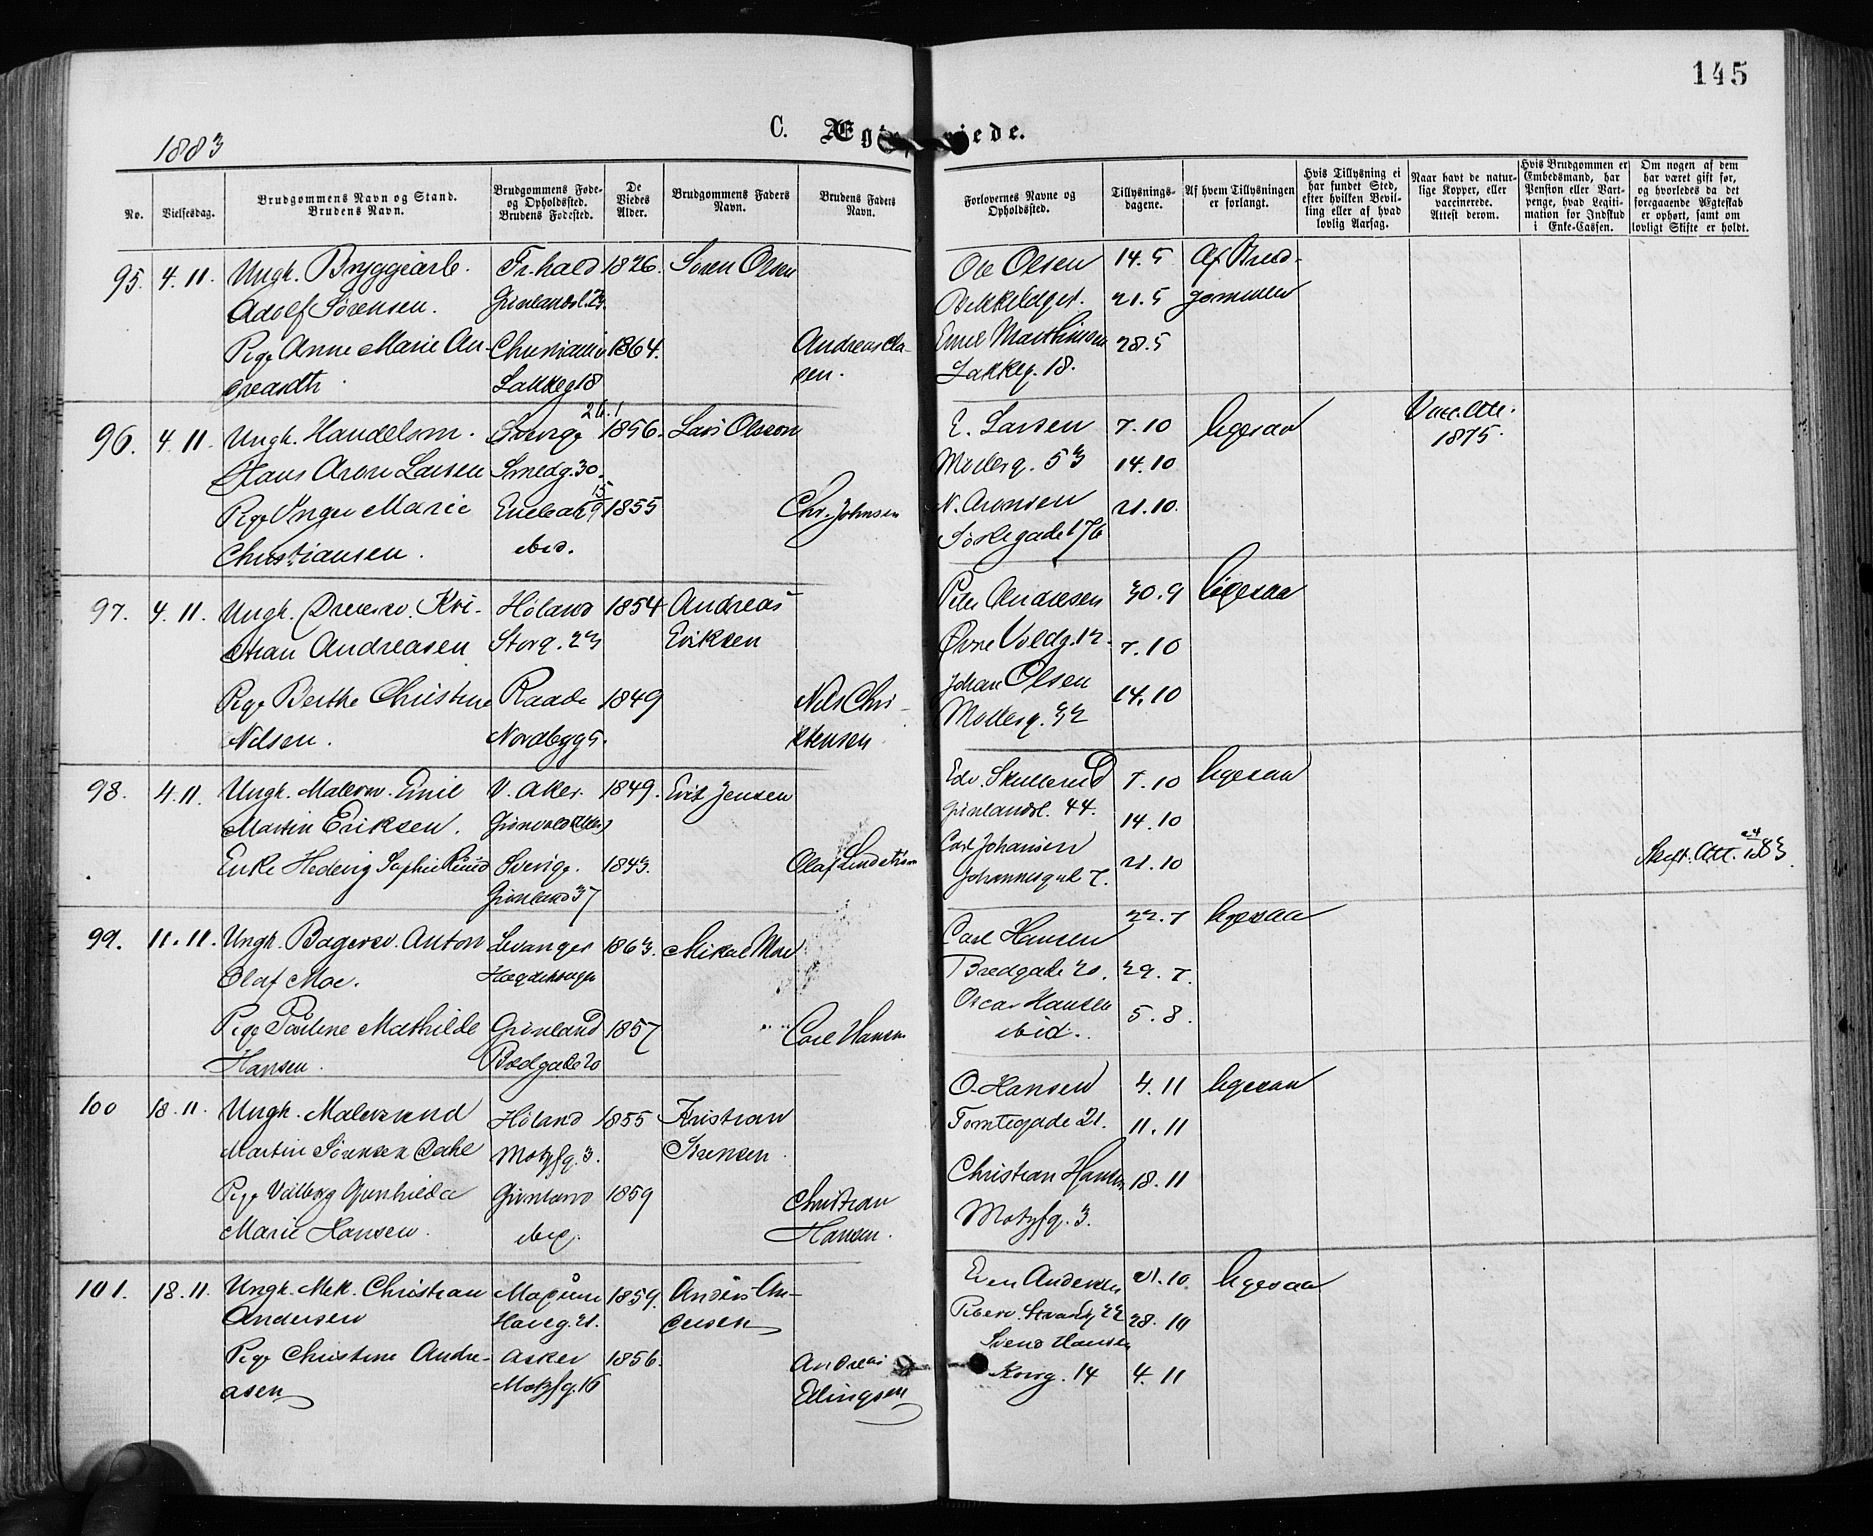 145
1883
C. Ægteviede.
No.
Vielsesdag.
Brudgommens Navn og Stand.
Brudens Navn.
Brudgommens Føde-
og Opholdssted.
Brudens Fødested.
De
Viedes
Alder.
Brudgommens Faders
Navn.
Brudens Faders
Navn.
Forlovernes Navne og
Opholdssted.
Tillysnings-
dagene.
Af hvem Tillysningen
er forlangt.
Hvis Tillysning ei
har fundet Sted,
efter hvilken Bevil-
ling eller af hvad
lovlig Aarsag.
Naar havt de natur-
lige Kopper, eller
vaccinerede.
Attest derom.
Hvis Brudgommen er
Embedsmand, har
Pension eller Vart-
penge, hvad Legiti-
mation for Indskud
i Enke-Cassen.
Om nogen af dem
har været gift før,
og hvorledes da det
foregaaende Ægteskab
er ophørt, samt om
lovligt Skifte er holdt.
95. 4.11. Ungk. Bryggearb. Fr.hald 1826. Søren Olsen Ole Olsen 14.5 Af Brud-
Adolf Sørensen. Grønlandsl. 23. 21.5 gommen
Pige Anne Marie An- Christiania 1864. Andreas Cla- Emil Marthinsen 28.5
dreasdtr. Lakkeg 18 sen. Lakkeg. 18.
96. 4.11. Ungk. Handelsm. Sverige 26.1 1856. Lars Olsson E. Larsen 7.10 ligesaa Vacc. Att.
Hans Aron Larsen Smedg. 30. Møllerg. 53 14.10 1875.
Pige Inger Marie Enebak 15/9 1855 Chr. Johnsen N. Aronsen 21.10.
Christiansen. ibid. 
97. 4.11. Ungk. Kri- Høland 1854 Andreas Peter Andresen 30.9 ligesaa
stian Andreasen Storg. 23 Eriksen Øvre Voldg. 12. 7.10
Pige Berthe Christine Raade 1849 Nils Chri- Johan Olsen 14.10
Nilsen. Nordbygg 5. stensen. Møllerg. 32
98. 4.11. Ungk. Malersv. Emil V. Aker. 1849. Erik Jensen Edv. Skullerud 7.10 ligesaa
Martin Eriksen. Grønlandsl. 44. 14.10
Enke Hedevig Sophie Sverige. 1843. Olaf Lindstrøm Carl Johansen 21.10 Skift. Att. 1883.
Grønland 37 Johannesgd. 7.
99. 11.11. Ungk. Bagersv. Anton Levanger 1863. Mikal Moe Carl Hansen 22.7 ligesaa
Olaf Moe. Hægdehaugen Bredgade 20. 29.7.
Pige Pauline Mathilde Grønland 1857 Carl Hansen Oscar Hansen 5.8.
Hansen. Bredgade 20 ibid.
100 18.11. Ungk. Malersvend Høland 1855 Kristian O. Hansen 4.11 ligesaa
Martin Sørensen Dahl Motzfg. 3. Sørensen. Tomtegade 21. 11.11
Pige Valborg Gunhilda Grønland 1859 Christian Christian Hansen 18.11
Marie Hansen. ibid. Hansen. Motzfg. 3.
101. 18.11. Ungk. Mek. Christian 1859. Anders An- Even Andersen 21.10. ligesaa
Andersen Haveg. 21. dersen 28.10
Pige Christine Andre- Asker 1856. Andreas Svend Hansen
asen Motzfg. 16 Ellingsen Korsg. 14 4.11